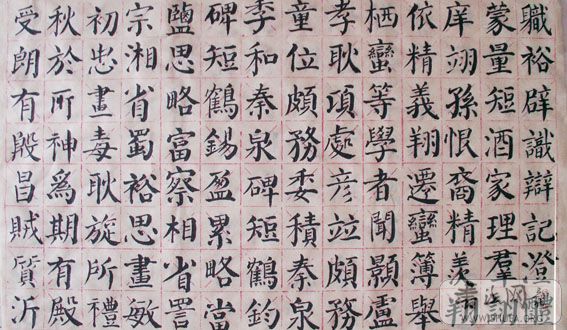 職裕辟識辯記澄體
蒙量短酒家理羣
庠翊孫恨裔精羨
依精義翔遷蠻簿舉
栖蠻等學者聞顥盧
孝耿項處彦竝頗務
童位頗務委積秦泉
季和秦泉碑短鶴鈞
碑短鶴錫盈累略當
鹽思略富察相省詈
宗湘省蜀裕思畫敏
初忠畫毒耿旋所禮
秋於所神為期有殿
受朗有殿昌賊質沂